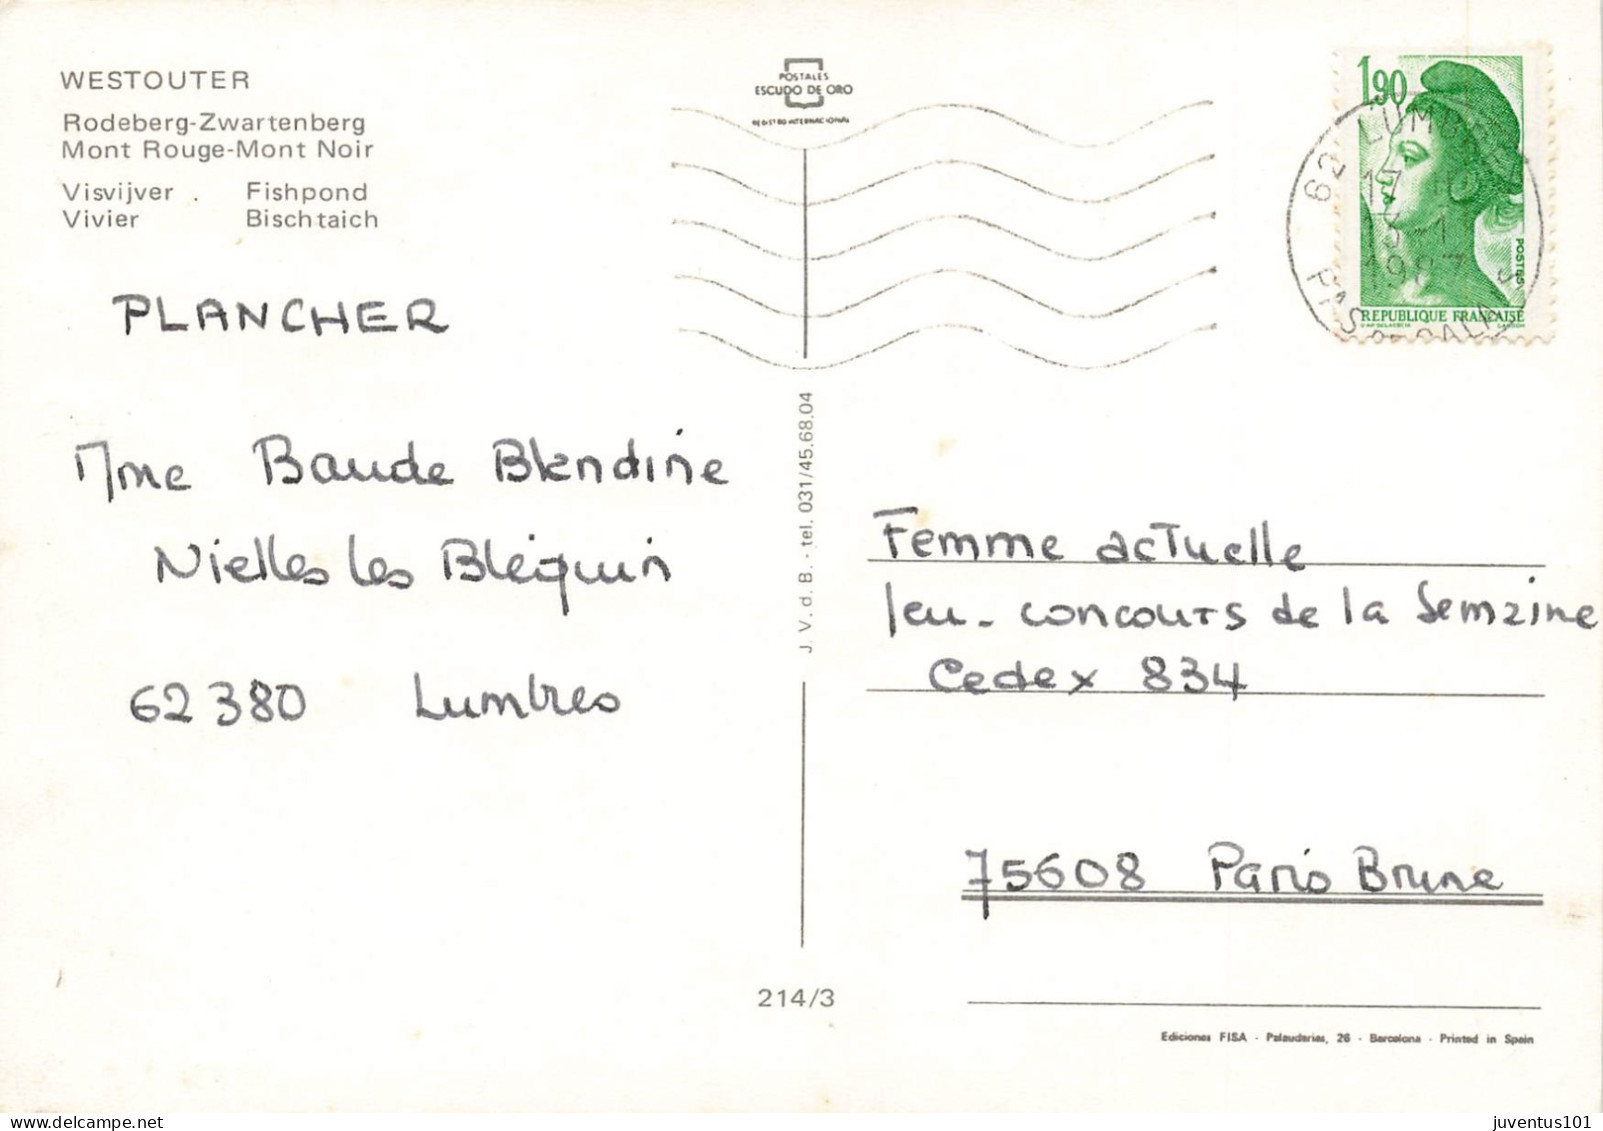 WESTOUTER
Rodeberg-Zwartenberg
Mont Rouge-Mont Noir
Visvijver . Fishpond
Vivier Bischtaich
POSTALES
ESCUDO DE ORO
REGISTRO INTERNACIONAL
1,90
POSTES
REPUBLIQUE FRANÇAISE
D'AP DELACROIX GANDON
62 LUMBRES
17
1987
PAS DE CALAIS
PLANCHER
Mme Baude Blandine
Nielles les Bléquin
62380 Lumbres
J. V. d. B. - tel. 031/45.68.04
Femme acTuelle
Jeu-concours de la Semaine
Cedex 834
75608 Paris Brune
214/3
Ediciones FISA - Palaudarias, 26 - Barcelona - Printed in Spain
juventus101